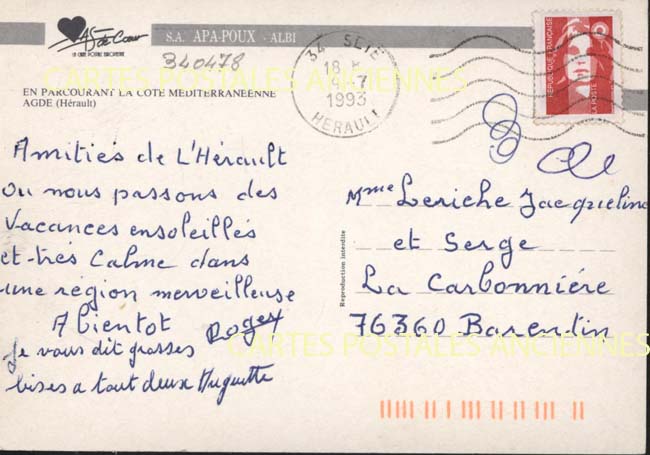 As de Coeur
LA CARTE POSTALE EUROPEENNE
S.A. APA-POUX - ALBI
340478
34 SETE
18 H
-7
1993
HERAULT
REPUBLIQUE FRANÇAISE
LA POSTE
CARTES POSTALES ANCIENNES
EN PARCOURANT LA COTE MEDITERRANEENNE
AGDE (Hérault)
Amitiés de L'Hérault
ou nous passons des
Vacances ensoleillés
et très Calme dans
une région merveilleuse
A bientot Roger
Je vous dit grosses
bises a tout deux Huguette
Reproduction interdite
Mme Leriche Jacqueline
et Serge
La Carbonnière
76360 Barentin
CARTES POSTALES ANCIENNES